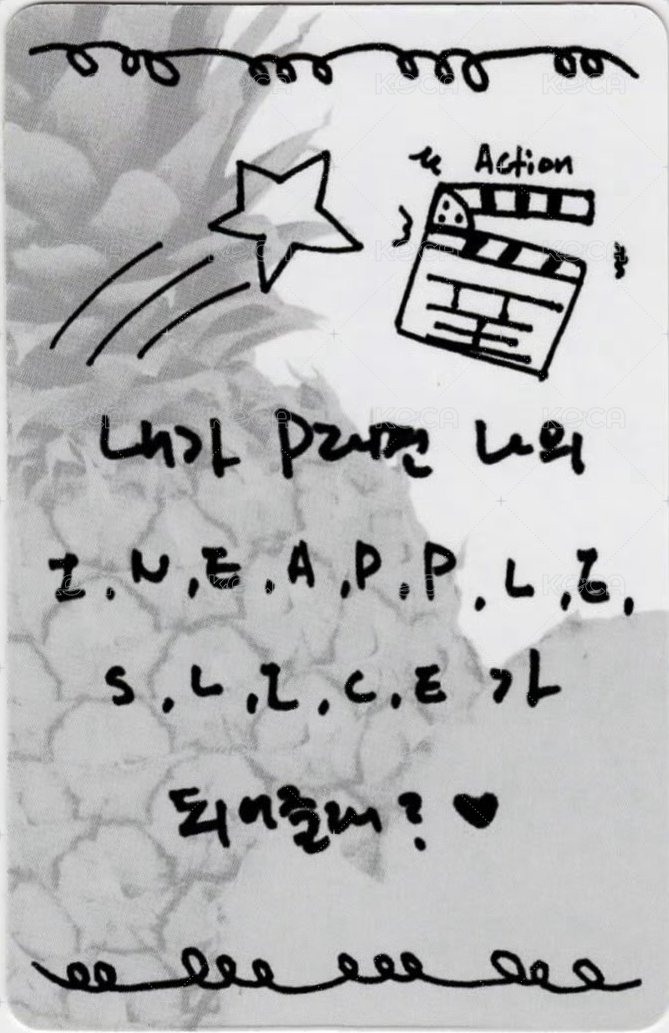 Action
내가 P라면 나의
I.N,E.A,P.P.L,E,
S.L,I.C.E 가
되어줄래? ♥
KOCA